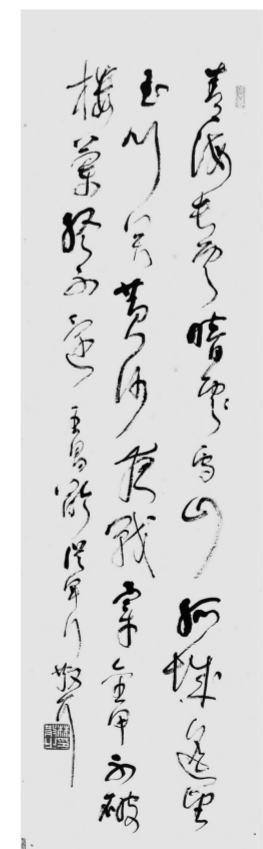 青海長雲暗雪山孤城遥望
玉門关黄沙夜戰穿金甲不破
樓蘭終不還 王昌齡從軍行